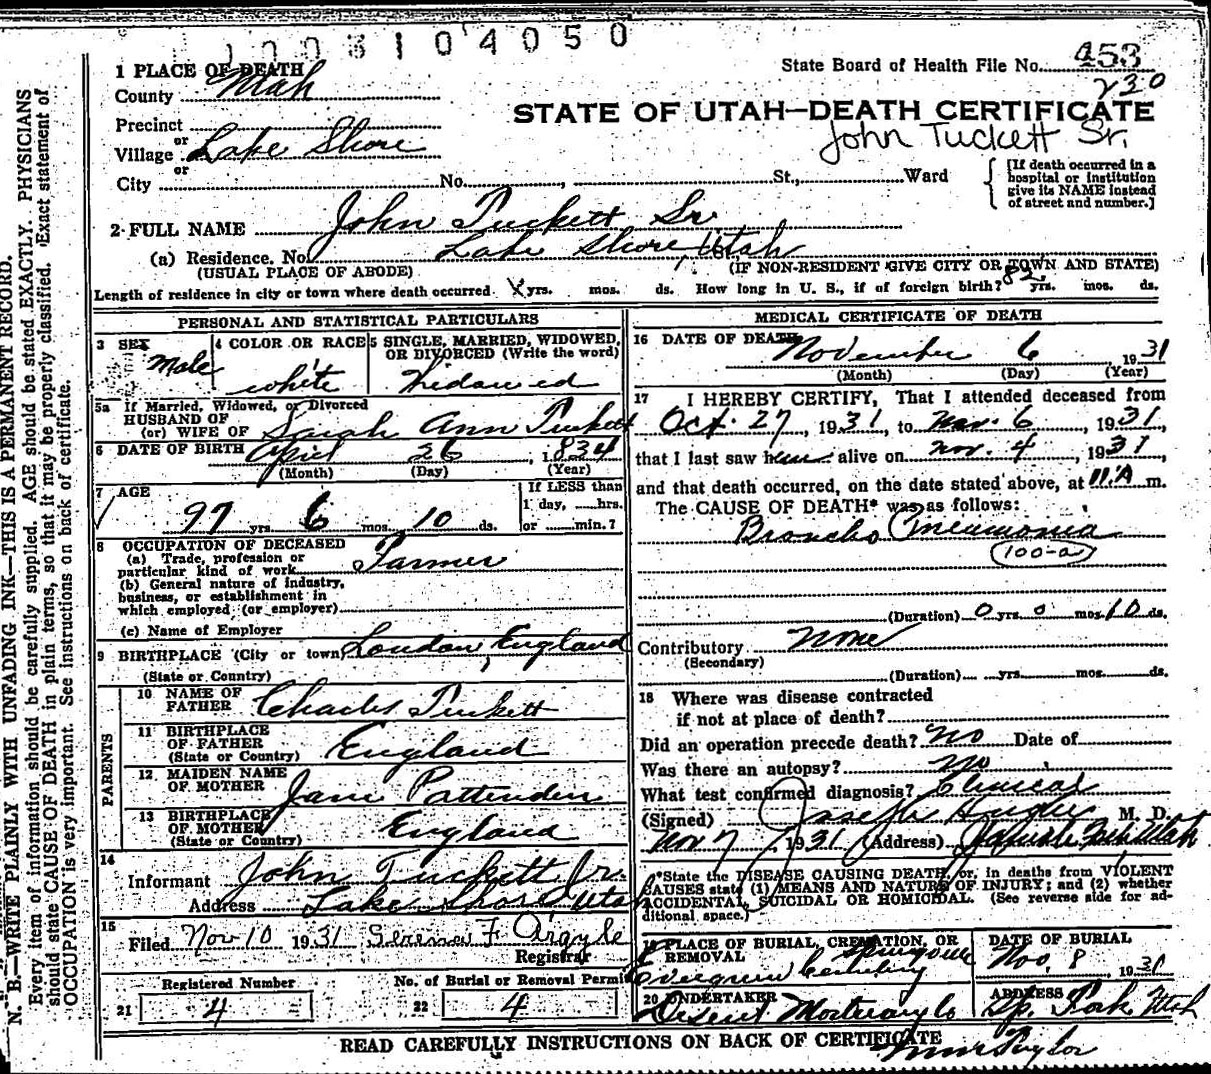 1003104050
State Board of Health File No. 453
230
STATE OF UTAH—DEATH CERTIFICATE
John Tuckett Sr.
1 PLACE OF DEATH
County Utah
Precinct
or
Village Lake Shore
or
City No. , St., Ward
[If death occurred in a
hospital or institution
give its NAME instead
of street and number.]
2 FULL NAME John Tuckett Sr.
(a) Residence. No. Lake Shore, Utah
(USUAL PLACE OF ABODE) (IF NON-RESIDENT GIVE CITY OR TOWN AND STATE)
Length of residence in city or town where death occurred yrs. mos. ds. How long in U. S., if of foreign birth? 82 yrs. mos. ds.
PERSONAL AND STATISTICAL PARTICULARS
3 SEX Male
4 COLOR OR RACE white
5 SINGLE, MARRIED, WIDOWED,
OR DIVORCED (Write the word)
Widowed
5a If Married, Widowed, or Divorced
HUSBAND OF
(or) WIFE OF Sarah Ann Tuckett
6 DATE OF BIRTH April 26, 1834
(Month) (Day) (Year)
7 AGE
97 yrs 6 mos. 10 ds.
If LESS than
1 day, hrs.
or min.?
8 OCCUPATION OF DECEASED
(a) Trade, profession or
particular kind of work Farmer
(b) General nature of industry,
business, or establishment in
which employed (or employer)
(c) Name of Employer
9 BIRTHPLACE (City or town) London, England
(State or Country)
PARENTS
10 NAME OF
FATHER Charles Tuckett
11 BIRTHPLACE
OF FATHER England
(State or Country)
12 MAIDEN NAME
OF MOTHER Jane Pattenden
13 BIRTHPLACE
OF MOTHER England
(State or Country)
14
Informant John Tuckett Jr.
Address Lake Shore Utah
15
Filed Nov 10 1931 Serena F. Argyle
Registrar
Registered Number
21 4
No. of Burial or Removal Permit
22 4
MEDICAL CERTIFICATE OF DEATH
16 DATE OF DEATH November 6, 1931
(Month) (Day) (Year)
17 I HEREBY CERTIFY, That I attended deceased from
Oct. 27, 1931, to Nov. 6, 1931,
that I last saw him alive on Nov. 4, 1931,
and that death occurred, on the date stated above, at 11 A m.
The CAUSE OF DEATH* was as follows:
Broncho Pneumonia
100-a
(Duration) 0 yrs. 0 mos. 10 ds.
Contributory None
(Secondary)
(Duration) yrs. mos. ds.
18 Where was disease contracted
if not at place of death?
Did an operation precede death? No Date of
Was there an autopsy? no
What test confirmed diagnosis? Clinical
(Signed) Joseph Hughes M. D.
Nov 7, 1931 (Address) Spanish Fork Utah
*State the DISEASE CAUSING DEATH, or, in deaths from VIOLENT
CAUSES state (1) MEANS AND NATURE OF INJURY; and (2) whether
ACCIDENTAL, SUICIDAL OR HOMICIDAL. (See reverse side for ad-
ditional space.)
19 PLACE OF BURIAL, CREMATION, OR
REMOVAL Springville
Evergreen Cemetery
DATE OF BURIAL
Nov. 8, 1931
20 UNDERTAKER
Deseret Mortuary Co
ADDRESS
Sp. Fork, Utah
READ CAREFULLY INSTRUCTIONS ON BACK OF CERTIFICATE
Taylor
N. B.—WRITE PLAINLY WITH UNFADING INK—THIS IS A PERMANENT RECORD.
Every item of information should be carefully supplied. AGE should be stated EXACTLY. PHYSICIANS
should state CAUSE OF DEATH in plain terms, so that it may be properly classified. Exact statement of
OCCUPATION is very important. See Instructions on back of certificate.